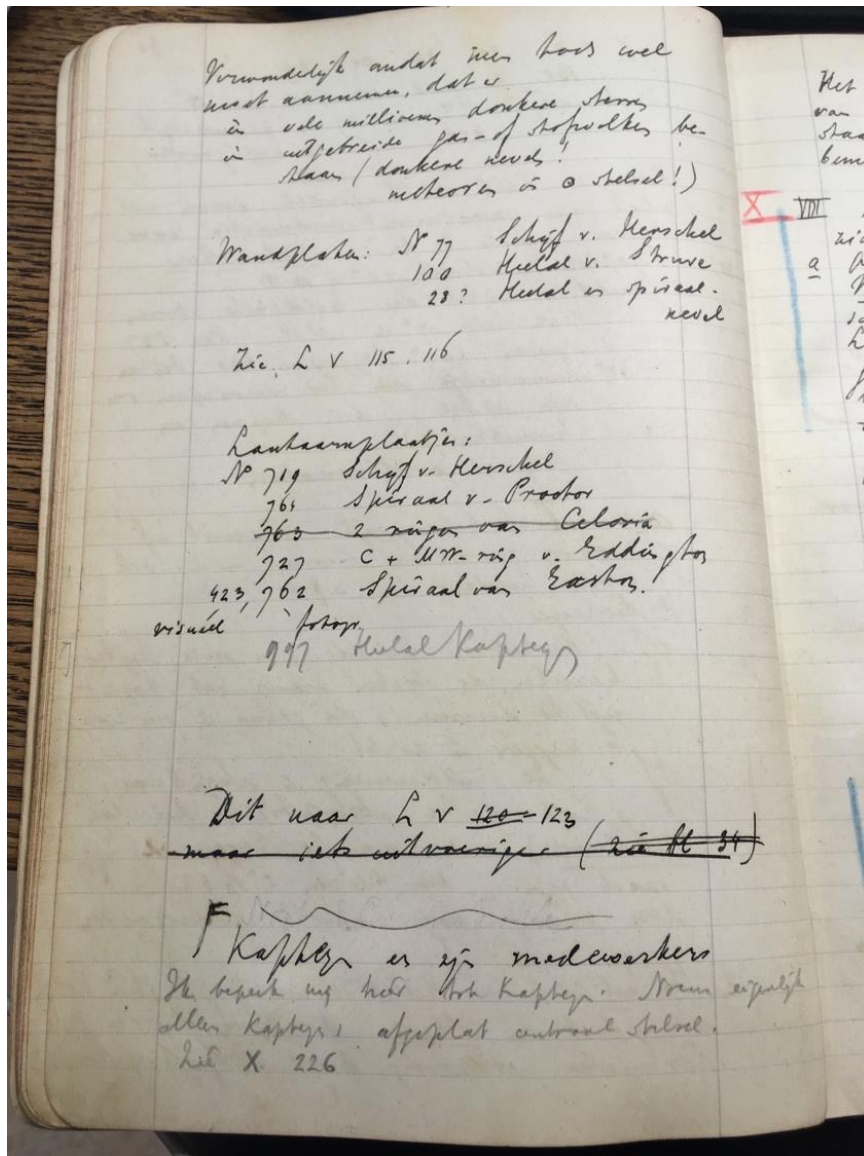 Verwonderlijk omdat men toch wel
moet aannemen, dat er
èn vele millioenen donkere sterren
èn uitgebreide gas- of stofwolken be-
staan (donkere nevels!
meteoren in ⊙ stelsel!)
Wandplaten: N 77 Schijf v. Herschel
100 Heelal v. Struve
28? Heelal en spiraal-
nevel
Zie L V 115, 116
Lantaarnplaatjes:
N 719 Schijf v. Herschel
761 Spiraal v. Proctor
763 2 ringen van Celoria
727 C + MW-ring v. Eddington
423, 762 Spiraal van Easton.
visueel fotogr.
997 Heelal Kapteyn
Dit naar L V 120-123
maar iets uitvoeriger (zie bl 34)
F
Kapteyn en zijn medewerkers
Ik beperk mij hier tot Kapteyn. Noem eigenlijk
alleen Kapteyn's afgeplat centraal stelsel.
Zie X 226
Het
van
staa
bem
X VIII
zie
a